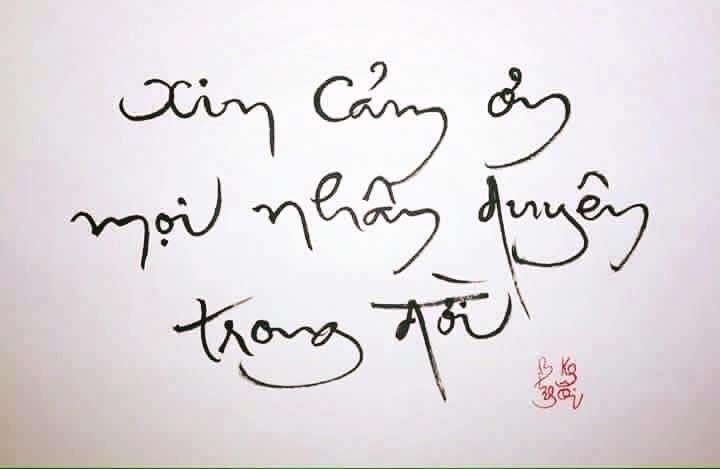 xin cảm ơn
mọi nhân duyên
trong đời